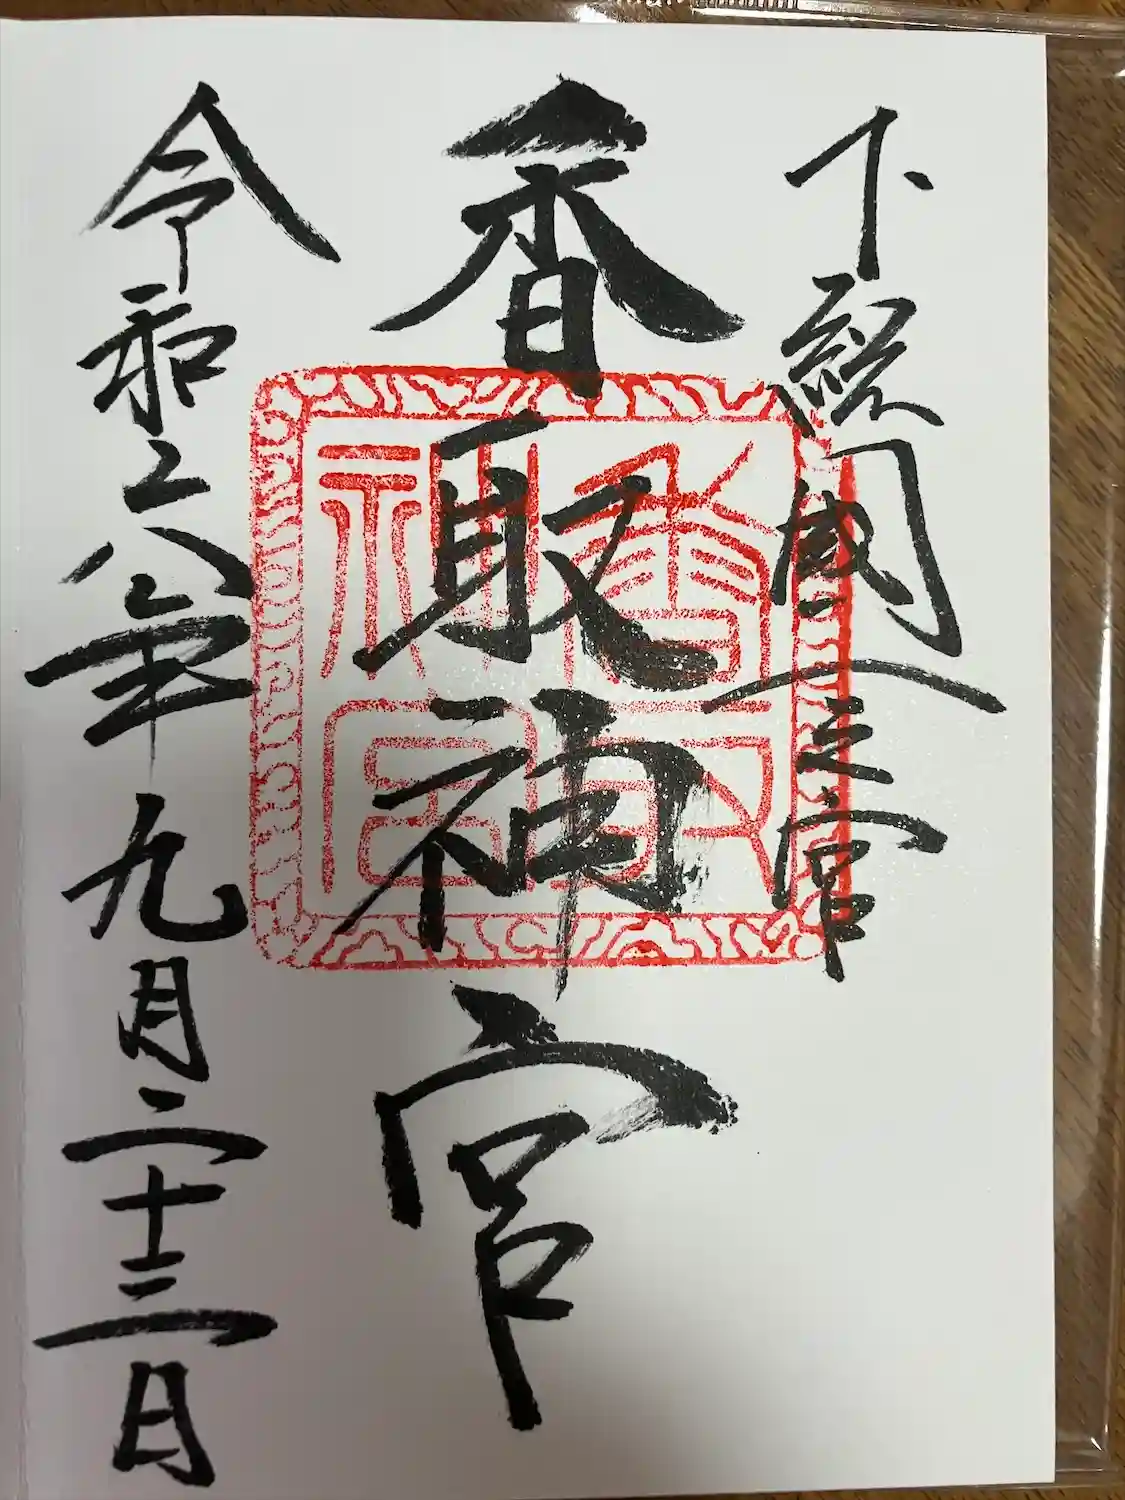 下総國一之宮
香取神宮
令和六年九月二十三日
香取
神宮